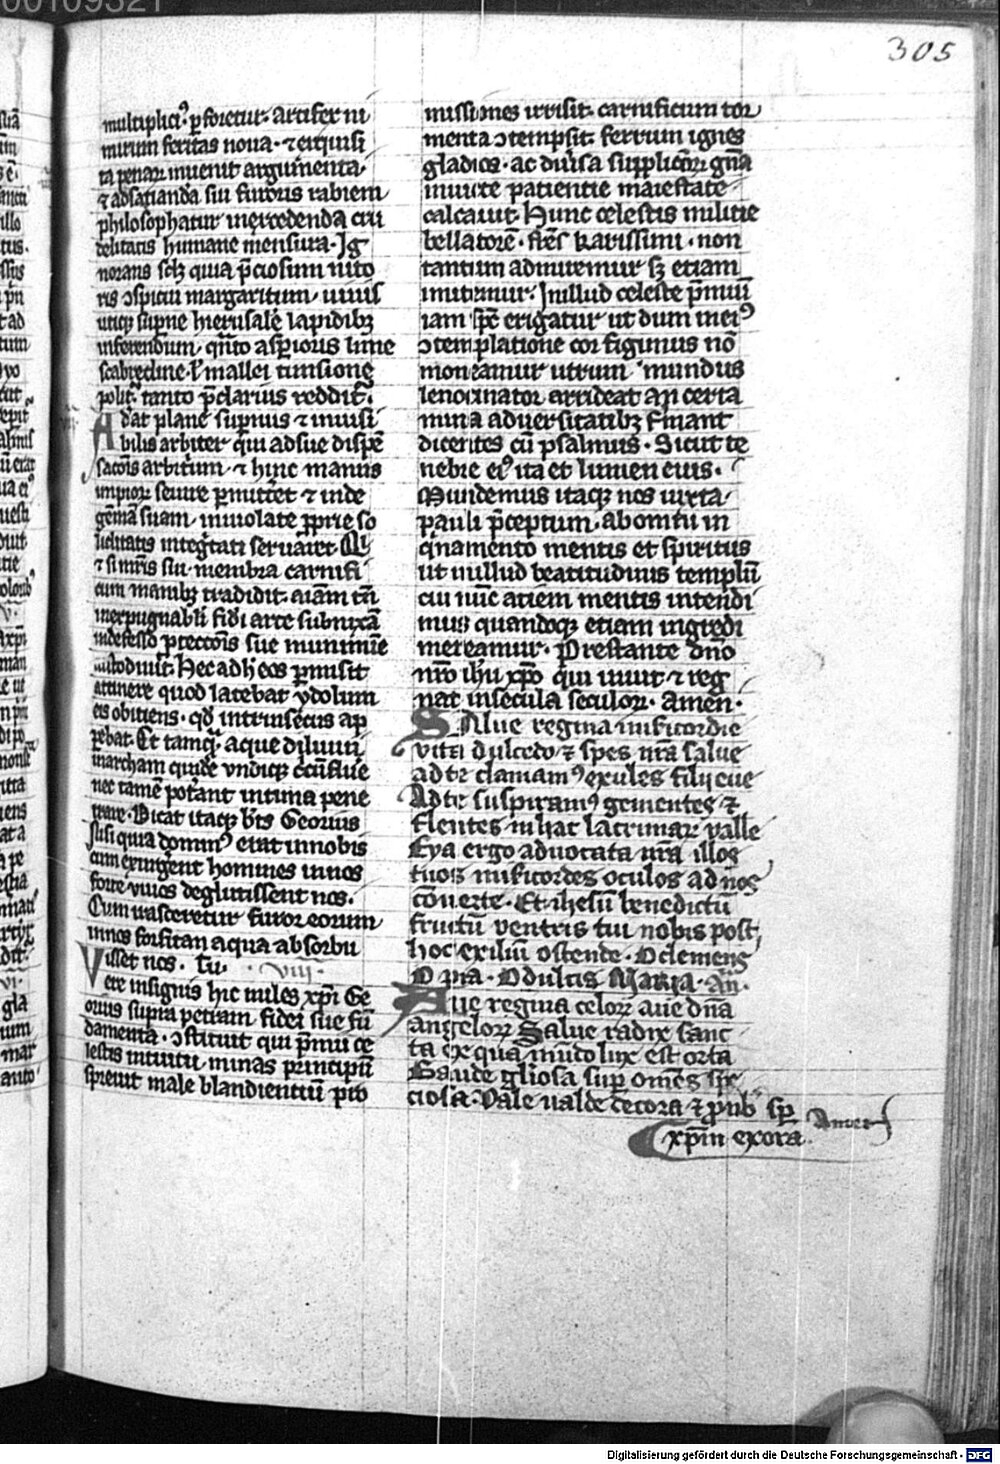 305
multiplici⁹ ꝑforetur artifex ni
mirum feritas noua · ⁊ exquisi
ta penaꝝ inuenit argumenta ·
⁊ adsatianda sui furoris rabiem
philosophatur
delitatis humane mensura · Ig
norans scꝫ quia p̄ciosum nito
ris ɔspicui margaritum, uiuis
utiqꝫ suꝑne hierusalē lapidibꝫ
inferendum, qn̄to asꝑioris lime
mallei tunsione
polit᷑ tanto p̄clarius reddit᷑
Adat plane suꝑnus ⁊ inuisi
bilis arbiter qui ad sue dispē
sacōis arbitrium, ⁊ hinc manus
impioꝝ seuire ꝑmittet ⁊ inde
gēmā suam, inuiolate ꝓprie so
liditatis integ̃tati seruaret
membra carnifi
cum manibꝫ tradidit aīam tn̄
inexpugnabili fidei arce subnixā
indefesso ꝓteccōis sue munimīe
custodiuit Hec ad h̄ eos ꝑmisit
attinere quod latebat ydolum
eis obiciens · qd̄ intrinsecus ap
ꝑebat Et tamqͣ aque diluuii
archam quidē vndiqꝫ
nec tamē pot̄ant intima pene
trare · Dicat itaqꝫ bt̄s Georius
Nisi quia domin⁹ erat innobis
cum exurgent homines innos
forte viuos deglutissent nos ·
Cum irasceretur furor eorum
innos forsitan aqua absorbu
isset nos · Tu · viij ·
Vere insignis hic miles xp̄i Ge
orius supra petram fidei sue fū
damenta · ɔstituit qui p̄mii ce
lestis intuitu, minas principū
spreuit male blandientiū pro
missiones irrisit carnificum tor
menta ɔtempsit ferrum ignes
gladios · ac diuersa suppliciorꝝ gn̄a
inuicte patientie maiestate
calcauit Hunc celestis militie
bellatorē · fr̄es karissimi · non
tantum admiremur sꝫ etiam
imitemur · Inillud celeste p̄miū
iam spē erigatur ut dum in ei⁹
ɔtemplatione cor figimus nō
moueamur utrum mundus
lenocinator arrideat an certa
mina aduersitatibꝫ
dicentes cū psalmus · Sicut te
nebre ei⁹ ita et lumen eius ·
Mundemus itaqꝫ nos iuxta
pauli p̄ceptum · ab omni in
qͥnamento mentis et spiritus
ut inillud beatitudinis templū
cui nūc aciem mentis intendi
mus quandoqꝫ etiam ingredi
mereamur · Prestante dn̄o
nr̄o ih̄u xp̄o qui uiuit ⁊ reg
nat insecula seculoꝝ · Amen ·
SAlue regina mīsericordie
vita dulcedo ⁊ spes nr̄a salue
ad te clamam⁹ exules filij eue
Ad te suspiram⁹ gementes ⁊
flentes in hac lacrimaꝝ valle
Eya ergo aduocata nr̄a illos
tuos mīsericordes oculos ad nos
cōuerte · Et ihesū benedictū
fructū ventris tui nobis post
hoc exiliū ostende · O clemens
O pia · O dulcis MARIA · An̄ ·
Aue regina celoꝝ aue dn̄a
angeloꝝ Salue radix sanc
ta ex qua mūdo lux est orta
Gaude gl̄iosa suꝑ om̄es spe
ciosa · Vale valde decora ⁊ pro nob̄ sꝑ
xp̄m exora · Amen
Digitalisierung gefördert durch die Deutsche Forschungsgemeinschaft - DFG